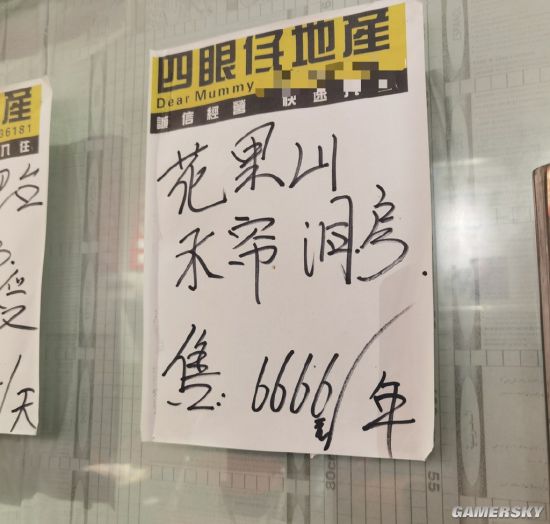 四眼仔地産
Dear Mummy
誠信經營 快速
花果山
水帘洞房.
售: 6666元/年
産
36181
天
80c
55
GAMERSKY